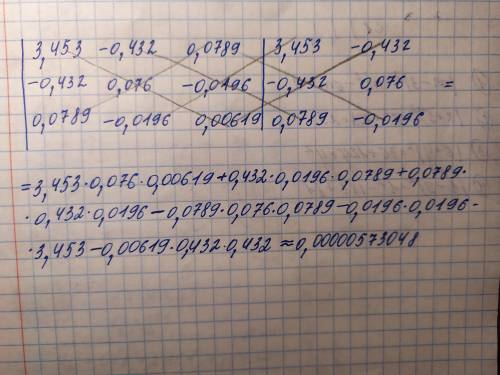 3,453 -0,432 0,0789 3,453 -0,432
-0,432 0,076 -0,0196 -0,432 0,076 =
0,0789 -0,0196 0,00619 0,0789 -0,0196
=3,453·0,076·0,00619+0,432·0,0196·0,0789+0,0789·
·0,432·0,0196-0,0789·0,076·0,0789-0,0196·0,0196·
·3,453-0,00619·0,432·0,432≈0,00000573048